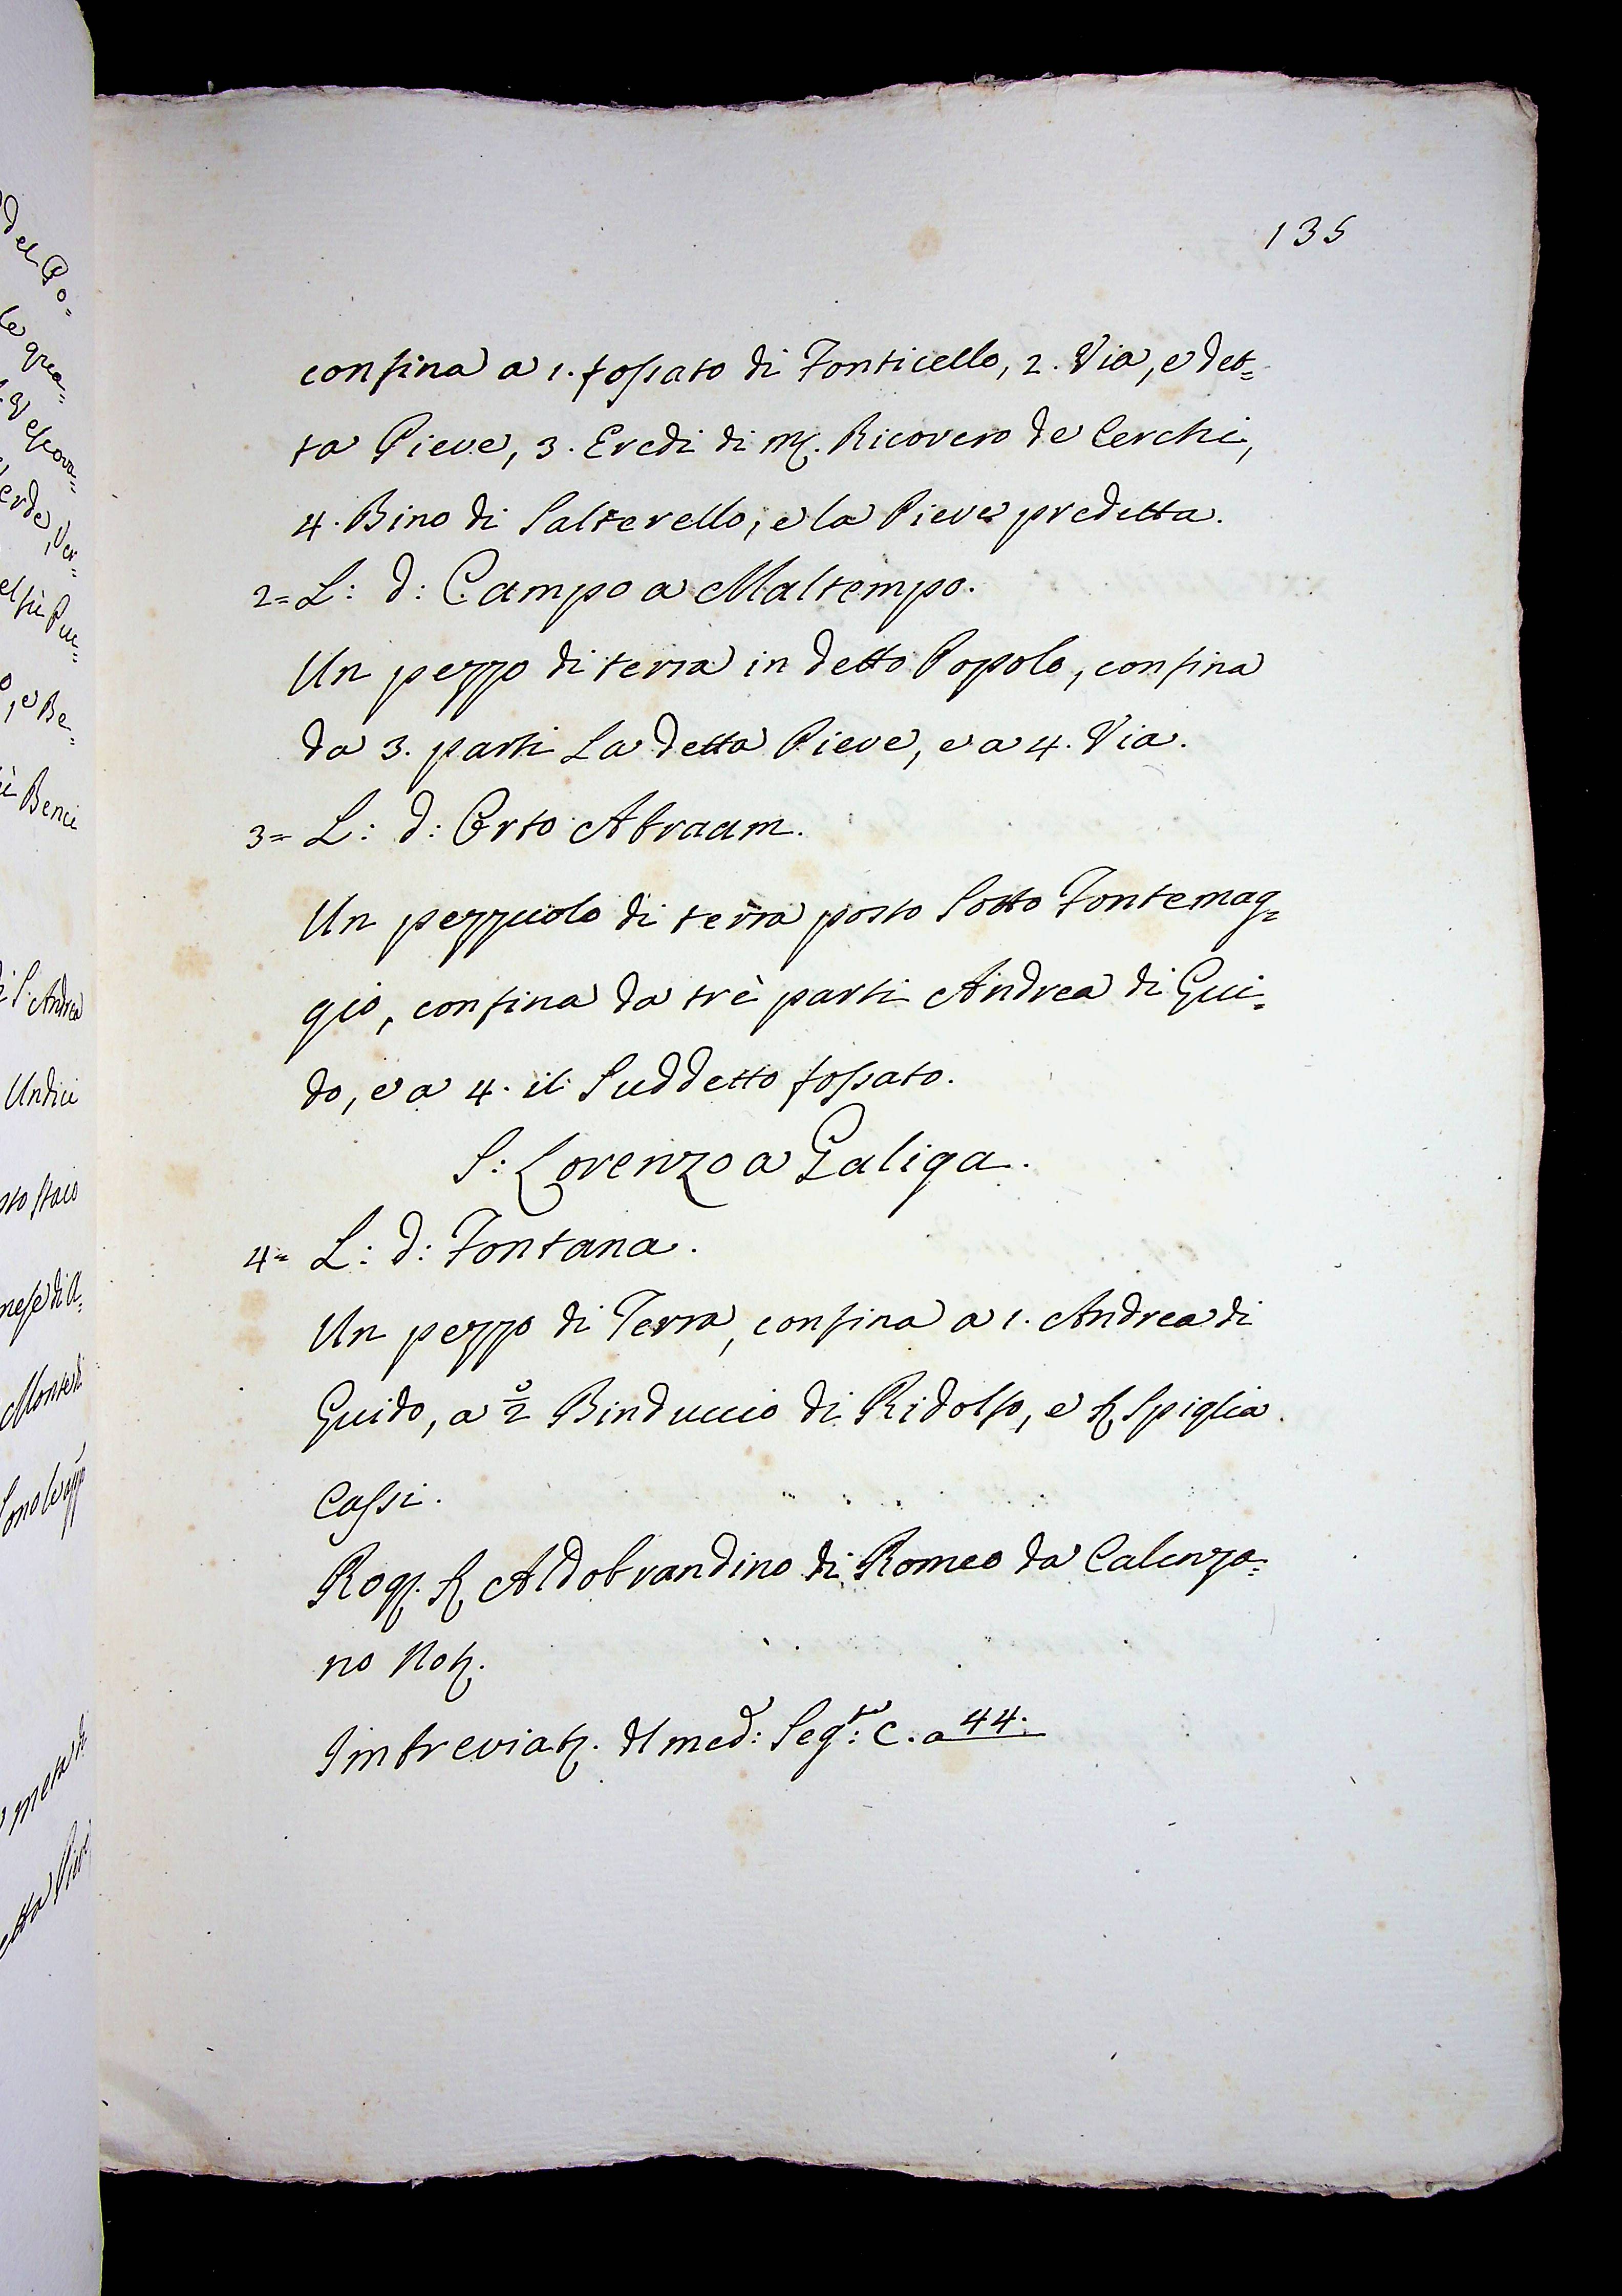 135
confina a 1. fossato di Fonticello, 2. Via, e det=
ta Pieve, 3. Eredi di M. Ricovero de Cerchi,
4. Bino di Salterello, e la Pieve predetta.
2= L: d: Campo a Maltempo.
Un pezzo di terra in detto Popolo, confina
da 3. parti La detta Pieve, e a 4. Via.
3= L: d: Orto Abraam.
Un pezzuolo di terra posto sotto Fontemag=
gio, confina da trè parti Andrea di Gui=
do, e a 4. il suddetto fossato.
S: Lorenzo a Galiga.
4= L: d: Fontana.
Un pezzo di Terra, confina a 1. Andrea di
Guido, a 2 Binduccio di Ridolfo, e S. Spiglia
Cassi.
Rog. S. Aldobrandino di Romeo da Calenza=
no Not.
Imbreviat. dl med: Segte: C. a 44.